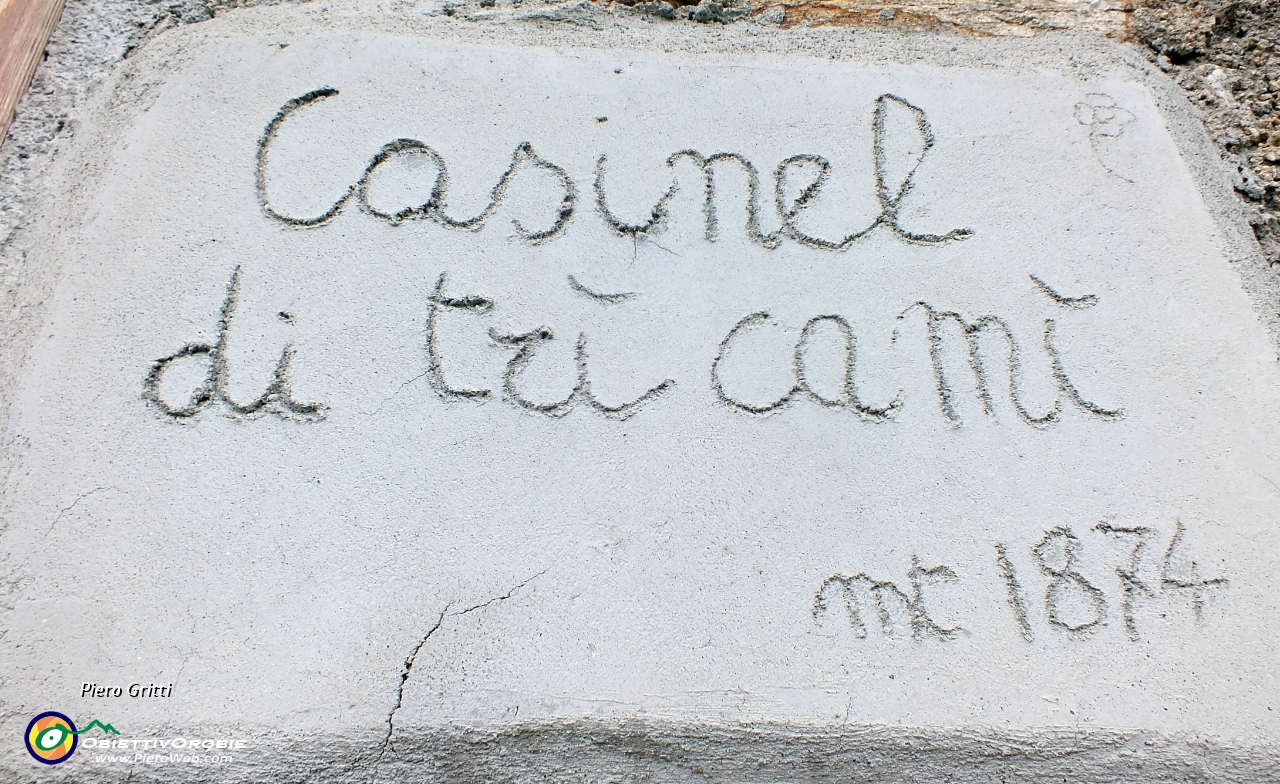 Casinel
di trì camì
mt 1874
Piero Gritti
ObiettivOrobie
www.PieroWeb.com